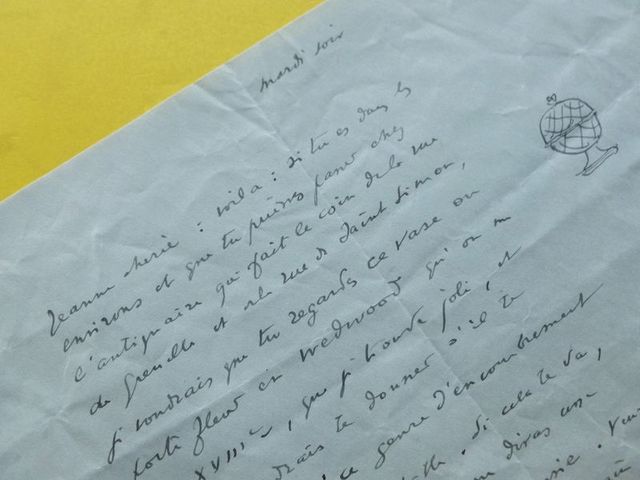 mardi soir
Jeanne chérie : voilà : si tu es dans les
environs et que tu puisses passer chez
l'antiquaire qui fait le coin de la rue
de Grenelle et de la rue de Saint Simon,
je voudrais que tu regardes ce vase ou
porte fleur en Wedwood qu'on
XVIIIe, que je trouve joli, et
te donner s'il te
ce genre d'encombrement
Si cela te va,
diras